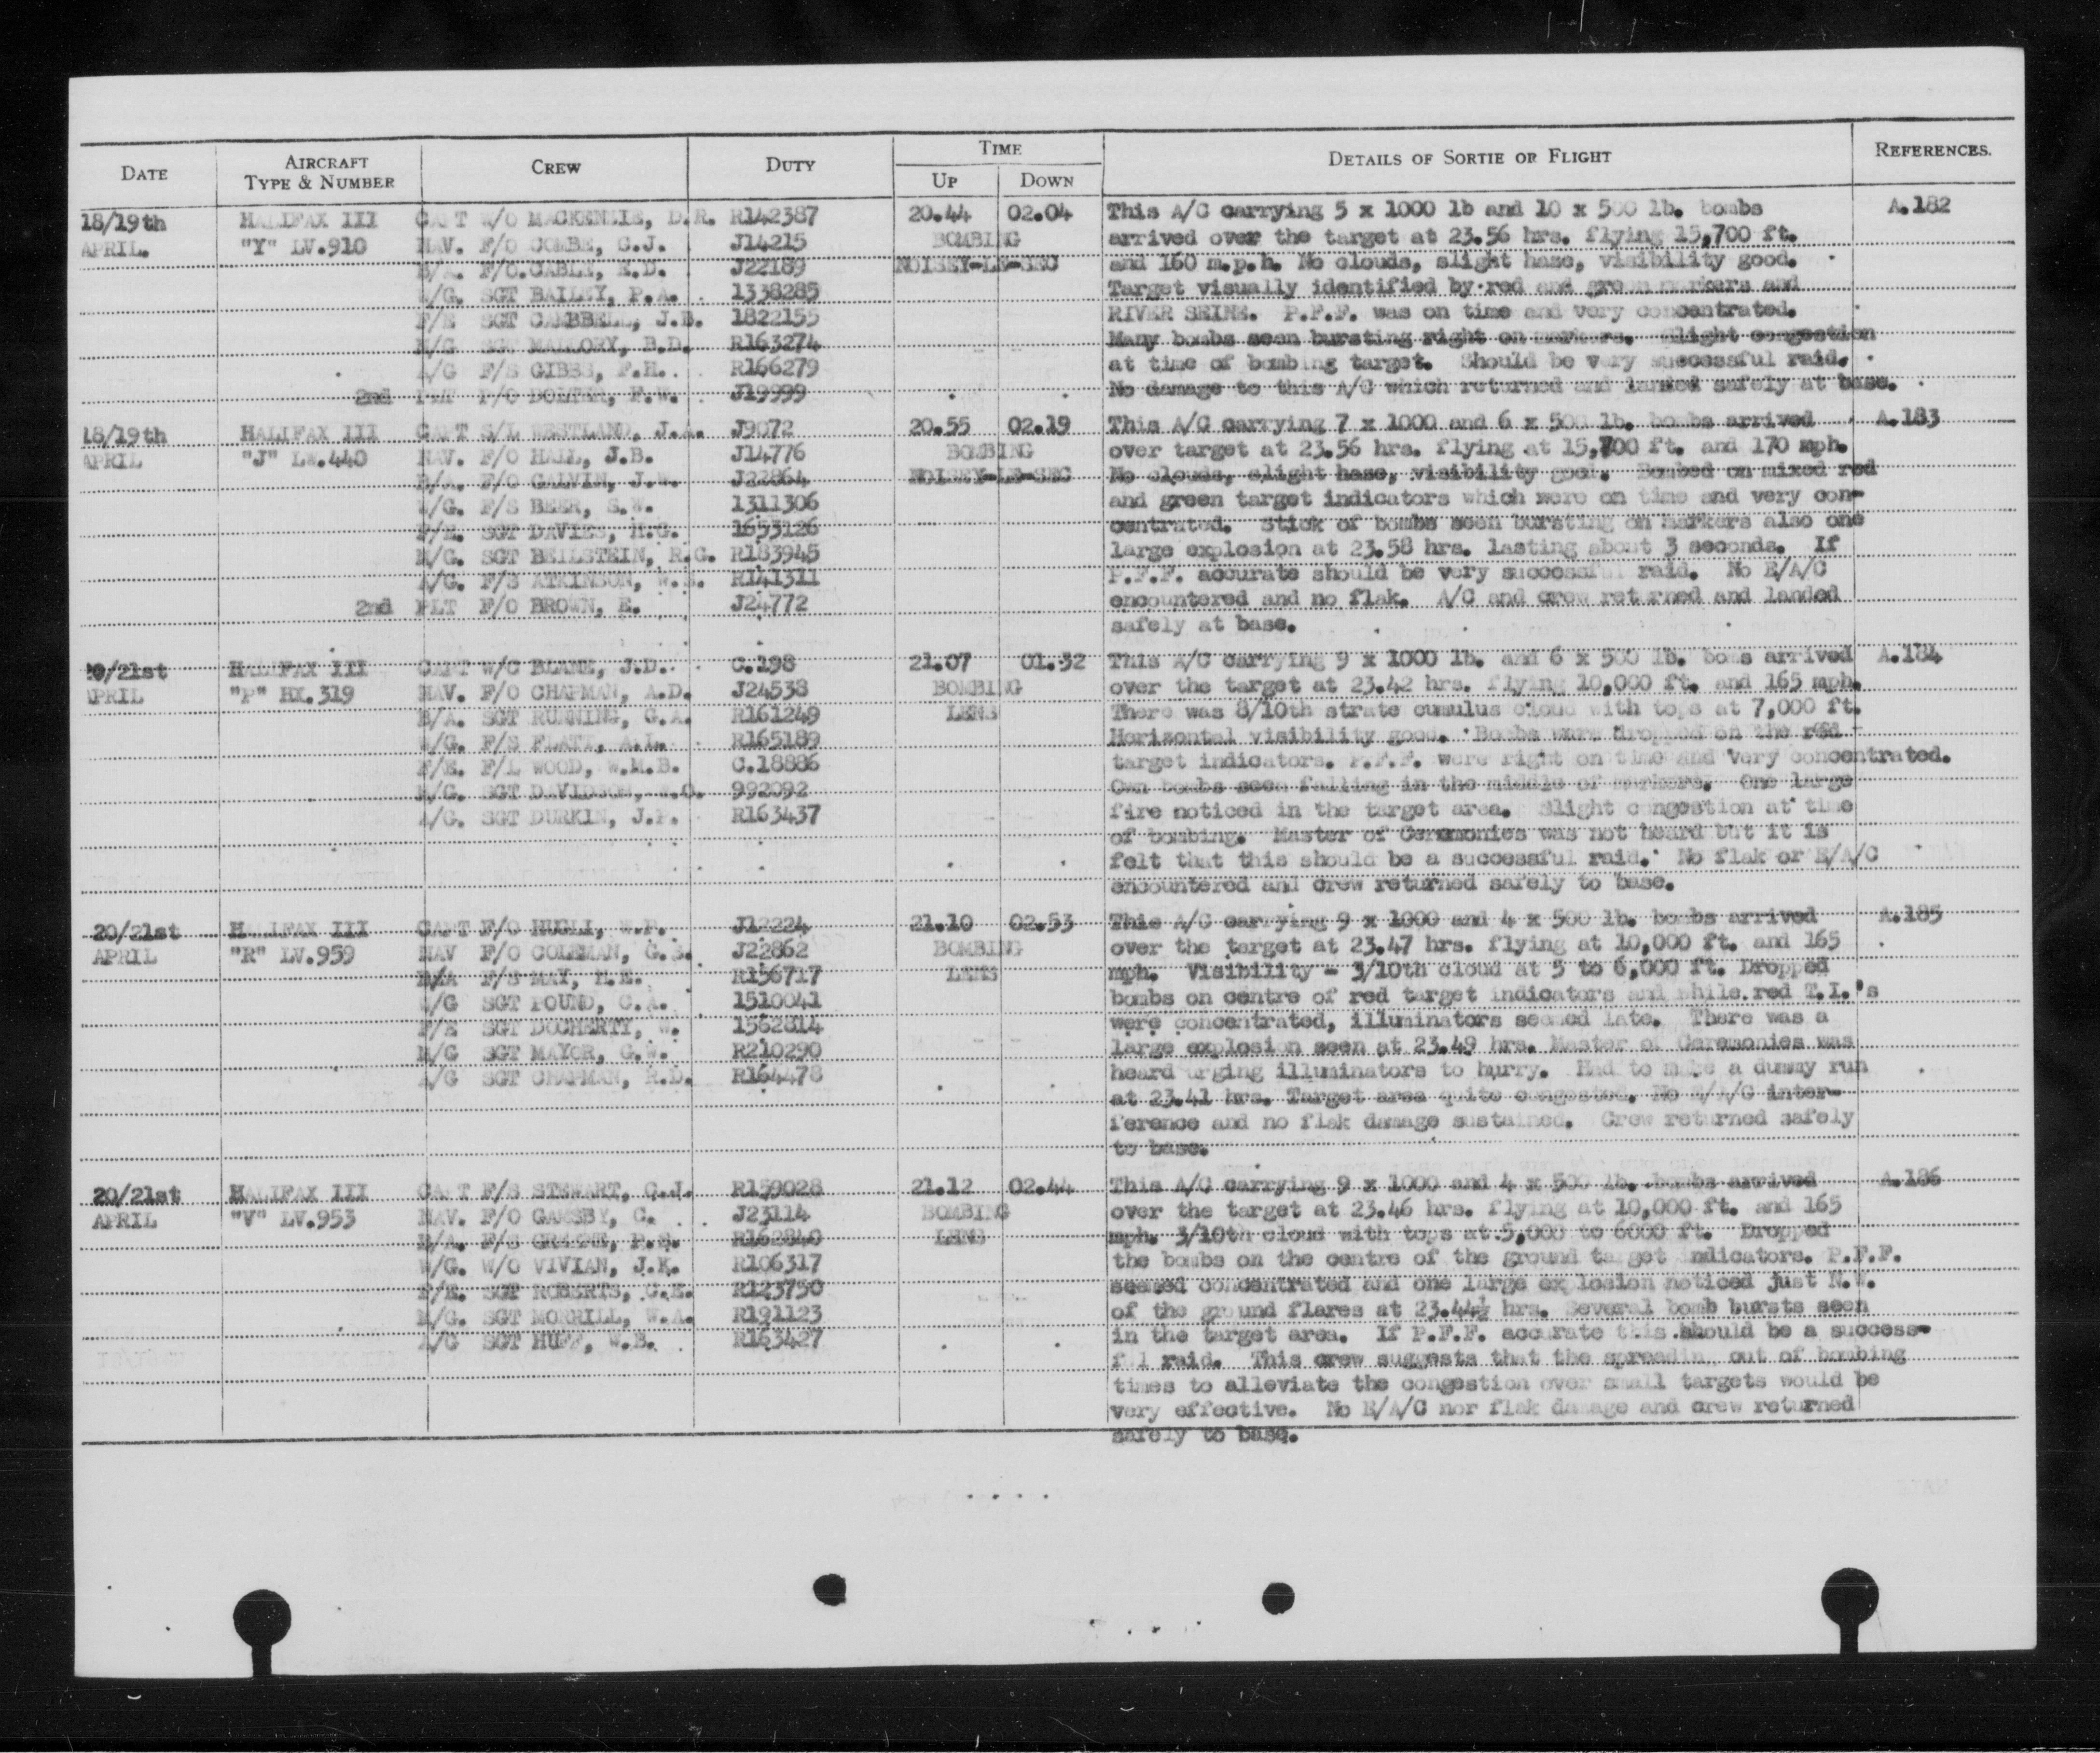 DATE AIRCRAFT TYPE & NUMBER CREW DUTY TIME UP DOWN DETAILS OF SORTIE OR FLIGHT REFERENCES.
18/19th HALIFAX III CAPT W/O MACKENZIE, D.R. R142387 20.44 02.04 This A/C carrying 5 x 1000 lb and 10 x 500 lb. bombs A.182
APRIL. "Y" LV.910 NAV. F/O COMBE, C.J. J14215 BOMBING arrived over the target at 23.56 hrs. flying 15,700 ft.
B/A. F/O.CABLE, E.D. J22189 NOISEY-LE-SEC and 160 m.p.h. No clouds, slight haze, visibility good.
W/G. SGT BAILEY, P.A. 1338285 Target visually identified by red and green markers and
F/E SGT CAMBBELL, J.B. 1822155 RIVER SEINE. P.F.F. was on time and very concentrated.
M/G SGT MALLORY, B.D. R163274 Many bombs seen bursting right on markers. Slight congestion
A/G F/S GIBBS, F.H. R166279 at time of bombing target. Should be very successful raid.
2nd PLT P/O BOLTER, F.W. J19999 No damage to this A/C which returned and landed safely at base.
18/19th HALIFAX III CAPT S/L WESTLAND, J.A. J9072 20.55 02.19 This A/C carrying 7 x 1000 and 6 x 500 lb. bombs arrived A.183
APRIL "J" LW.440 NAV. F/O HALL, J.B. J14776 BOMBING over target at 23.56 hrs. flying at 15,700 ft. and 170 mph.
B/A. F/O GALVIN, J.W. J22864 NOISEY-LE-SEC No clouds, slight haze, visibility good. Bombed on mixed red
W/G. F/S BEER, S.W. 1311306 and green target indicators which were on time and very con-
F/E. SGT DAVIES, H.G. 1653126 centrated. Stick of bombs seen bursting on markers also one
M/G. SGT BEILSTEIN, R.G. R183945 large explosion at 23.58 hrs. lasting about 3 seconds. If
A/G. F/S ATKINSON, W.S. R141311 P.F.F. accurate should be very successful raid. No E/A/C
2nd PLT F/O BROWN, E. J24772 encountered and no flak. A/C and crew returned and landed
safely at base.
20/21st HALIFAX III CAPT W/C BLANE, J.D. C.198 21.07 01.32 This A/C carrying 9 x 1000 lb. and 6 x 500 lb. bombs arrived A.184
APRIL "P" HX.319 NAV. F/O CHAPMAN, A.D. J24538 BOMBING over the target at 23.42 hrs. flying 10,000 ft. and 165 mph.
B/A. SGT RUNNING, G.A. R161249 LENS There was 8/10th strate cumulus cloud with tops at 7,000 ft.
W/G. F/S FLATT, A.L. R165189 Horizontal visibility good. Bombs were dropped on the red
F/E. F/L WOOD, W.M.B. C.18886 target indicators. P.F.F. were right on time and very concentrated.
M/G. SGT DAVIDSON, W.O. 992092 Own bombs seen falling in the middle of markers. One large
A/G. SGT DURKIN, J.P. R163437 fire noticed in the target area. Slight congestion at time
of bombing. Master of Ceremonies was not heard but it is
felt that this should be a successful raid. No flak or E/A/C
encountered and crew returned safely to base.
20/21st HALIFAX III CAPT F/O HUGLI, W.P. J12224 21.10 02.53 This A/C carrying 9 x 1000 and 4 x 500 lb. bombs arrived A.185
APRIL "R" LV.959 NAV F/O COLEMAN, G.S. J22862 BOMBING over the target at 23.47 hrs. flying at 10,000 ft. and 165
B/A F/S MAY, H.E. R156717 LENS mph. Visibility - 3/10th cloud at 5 to 6,000 ft. Dropped
W/G SGT POUND, C.A. 1510041 bombs on centre of red target indicators and while red T.I.'s
F/E SGT DOCHERTY, W. 1562814 were concentrated, illuminators seemed late. There was a
M/G SGT MAYOR, G.W. R210290 large explosion seen at 23.49 hrs. Master of Ceremonies was
A/G SGT CHAPMAN, R.D. R164478 heard urging illuminators to hurry. Had to make a dummy run
at 23.41 hrs. Target area quite congested. No E/A/C inter-
ference and no flak damage sustained. Crew returned safely
to base.
20/21st HALIFAX III CAPT F/S STEWART, C.J. R159028 21.12 02.44 This A/C carrying 9 x 1000 and 4 x 500 lb. bombs arrived A.186
APRIL "V" LV.953 NAV. F/O GAMSBY, C. J23114 BOMBING over the target at 23.46 hrs. flying at 10,000 ft. and 165
B/A. F/S P.S. R162840 LENS mph. 3/10th cloud with tops at 5,000 to 6000 ft. Dropped
W/G. W/O VIVIAN, J.K. R106317 the bombs on the centre of the ground target indicators. P.F.F.
F/E. SGT ROBERTS, C.E. R123750 seemed concentrated and one large explosion noticed just N.W.
M/G. SGT MORRILL, W.A. R191123 of the ground flares at 23.44½ hrs. Several bomb bursts seen
A/G SGT HUFF, W.B. R163427 in the target area. If P.F.F. accurate this should be a success-
ful raid. This crew suggests that the spreading out of bombing
times to alleviate the congestion over small targets would be
very effective. No E/A/C nor flak damage and crew returned
safely to base.